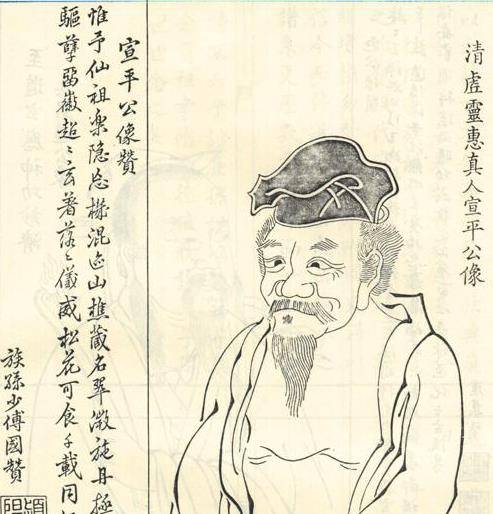 清虛靈惠真人宣平公像
宣平公像贊
惟予仙祖樂隐忘機混迹山樵藏名翠微施丹極
驅孽留徽超〻玄著落〻儀威松花可食千載同
族孫少傅國贊